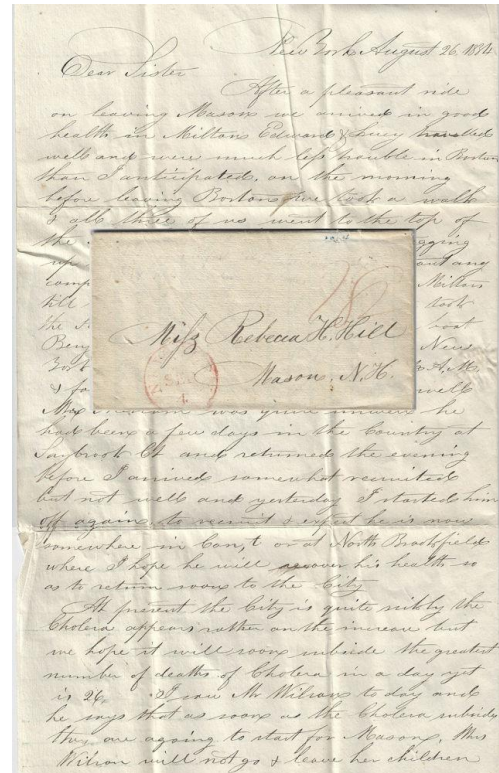 New York August 26. 1834
Dear Sister
After a pleasant ride
on leaving Mason we arrived in good
health in Milton Edward & Lucy travelled
well and were much less trouble in Boston
than I anticipated, on the morning
before leaving Boston we took a walk
& all three of us went to the top of
the
up
comp
till
the
Benj
York
& fo
gging
out any
Milton
took
boat
New
A.M.
well
Miss Rebecca H. Hill
Mason, N.H.
was quite unwell he
had been a few days in the Country at
Saybrook Ct and returned the evening
before I arrived somewhat recruited
but not well and yesterday I started him
off again to recruit & expect he is now
somewhere in Con,t or at North Brookfield
where I hope he will recover his health so
as to return soon to the City
At present the City is quite sickly the
Cholera appears rather on the increase but
we hope it will soon subside the greatest
number of deaths of Cholera in a day yet
is 26. I saw Mr Wilson to day and
he says that as soon as the Cholera subsides
they are agoing to start for Mason, Mrs
Wilson will not go & leave her children